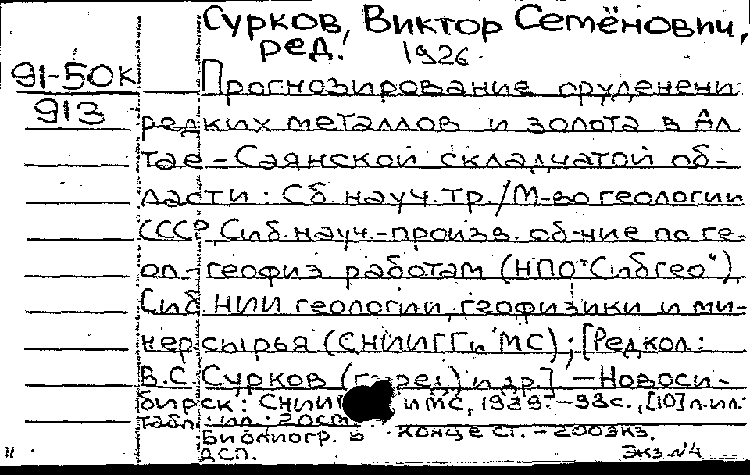 Сурков, Виктор Семёнович,
ред. 1926.
91-50К
913
Прогнозирование оруденени
редких металлов и золота в Ал
тае-Саянской складчатой об-
ласти: Сб. науч. тр. / М-во геологии
СССР, Сиб. науч.-произв. об-ние по ге-
ол.-геофиз работам (НПО "Сибгео"),
Сиб НИИ геологии, геофизики и ми-
нер сырья (СНИИГГиМС); [Редкол:
В.С. Сурков и др.] - Новоси-
бирск: СНИИ и МС, 1989. - 93с., [10] л. ил.
табл.: ил.; 20см
Библиогр. в конце ст. - 200экз.
ДСП. Экз. №4